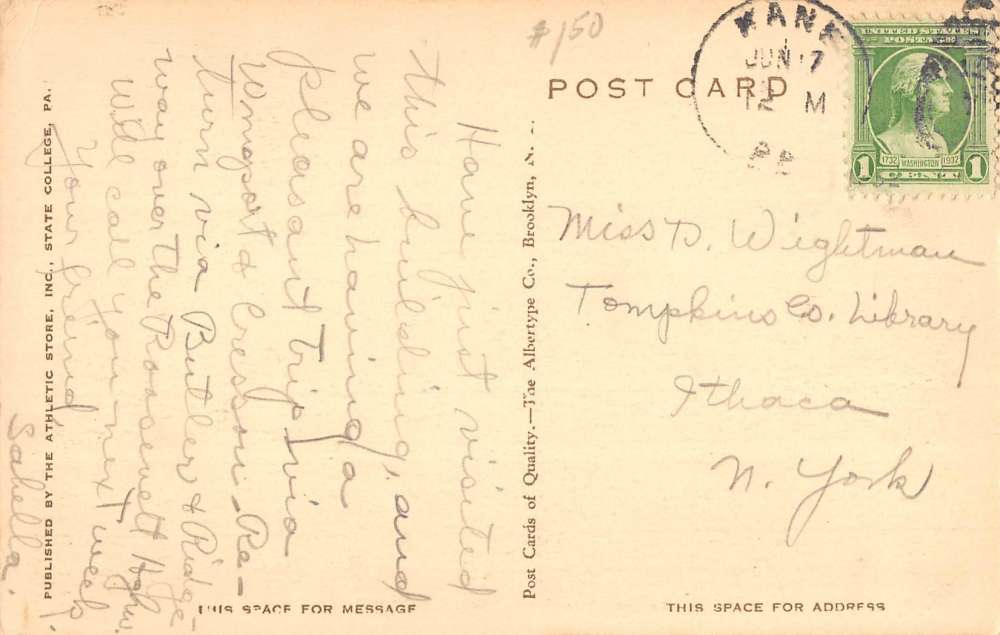 $150
POST CARD
KANE
JUN 17
12 M
PA
UNITED STATES
POSTAGE
1732 WASHINGTON 1932
1 1
Miss D. Wightman
Tompkins Co. Library
Ithaca
N. York
THIS SPACE FOR ADDRESS
Post Cards of Quality.—The Albertype Co., Brooklyn, N.
Have just visited
this building, and
we are having a
pleasant trip via
Wmsport & Cresson - Re-
turn via Butler & Ridge-
way over the Roosevelt Highw.
Will call you next week
Your friend,
THIS SPACE FOR MESSAGE
PUBLISHED BY THE ATHLETIC STORE, INC., STATE COLLEGE, PA.